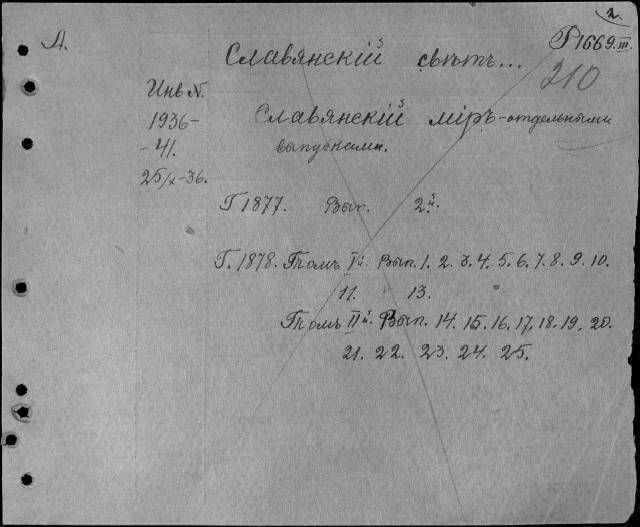 2.
А.
Р1669.III.
Славянскій свѣтъ...
210
Инв N.
1936-
-41.
25/X-36.
Славянскій міръ-отдельными
выпусками.
Г 1877. Вып. 2й.
Г. 1878. Томъ Iй. Вып. 1. 2. 3. 4. 5. 6. 7. 8. 9. 10.
11. 13.
Томъ IIй. Вып. 14. 15. 16. 17. 18. 19. 20.
21. 22. 23. 24. 25.